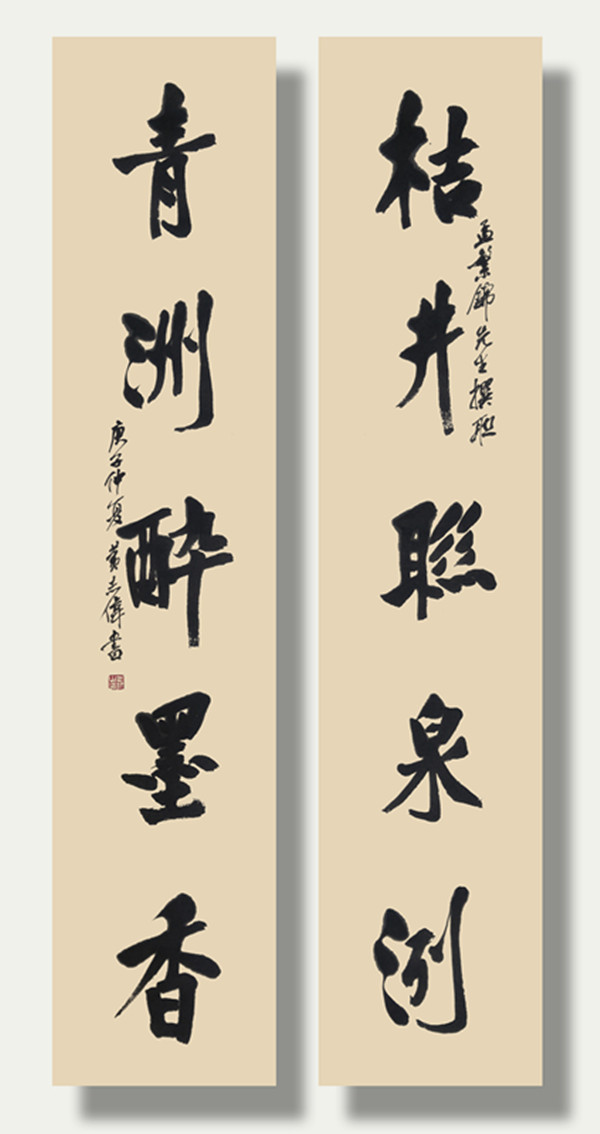 桔井聯泉洌
孟繁錦先生撰聯
青洲醉墨香
庚子仲夏 黄志偉書